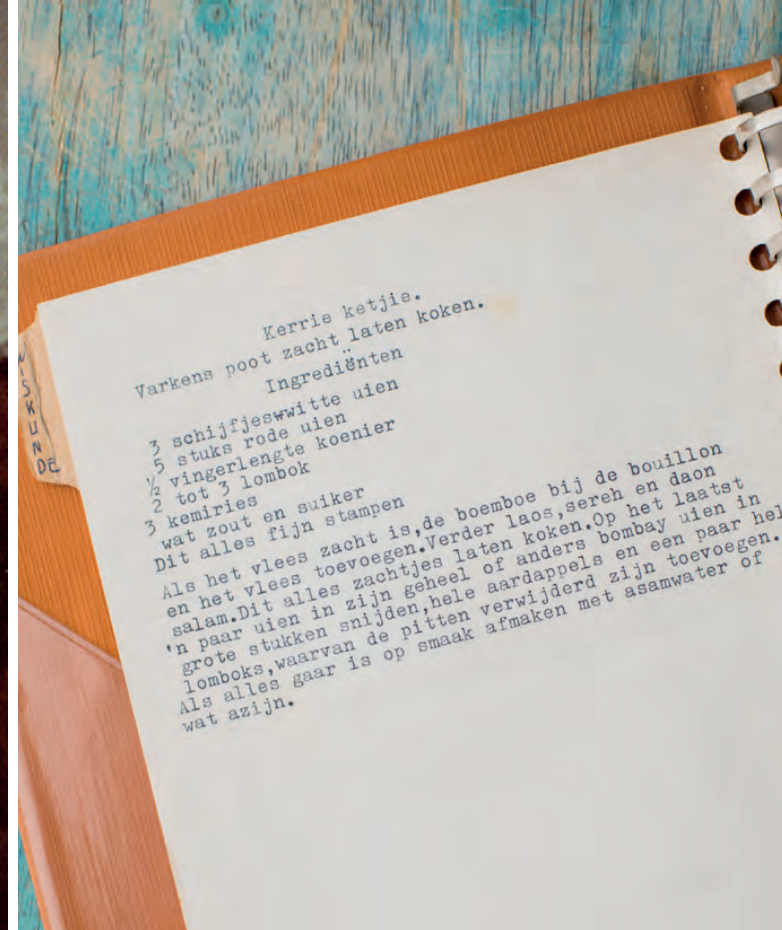 WISKUNDE
Kerrie ketjie.
Varkens poot zacht laten koken.
Ingrediënten
3 schijfjeswwitte uien
5 stuks rode uien
½ vingerlengte koenier
2 tot 3 lombok
3 kemiries
wat zout en suiker
Dit alles fijn stampen
Als het vlees zacht is,de boemboe bij de bouillon
en het vlees toevoegen.Verder laos,sereh en daon
salam.Dit alles zachtjes laten koken.Op het laatst
'n paar uien in zijn geheel of anders bombay uien in
grote stukken snijden,hele aardappels en een paar hel
lomboks,waarvan de pitten verwijderd zijn toevoegen.
Als alles gaar is op smaak afmaken met asamwater of
wat azijn.